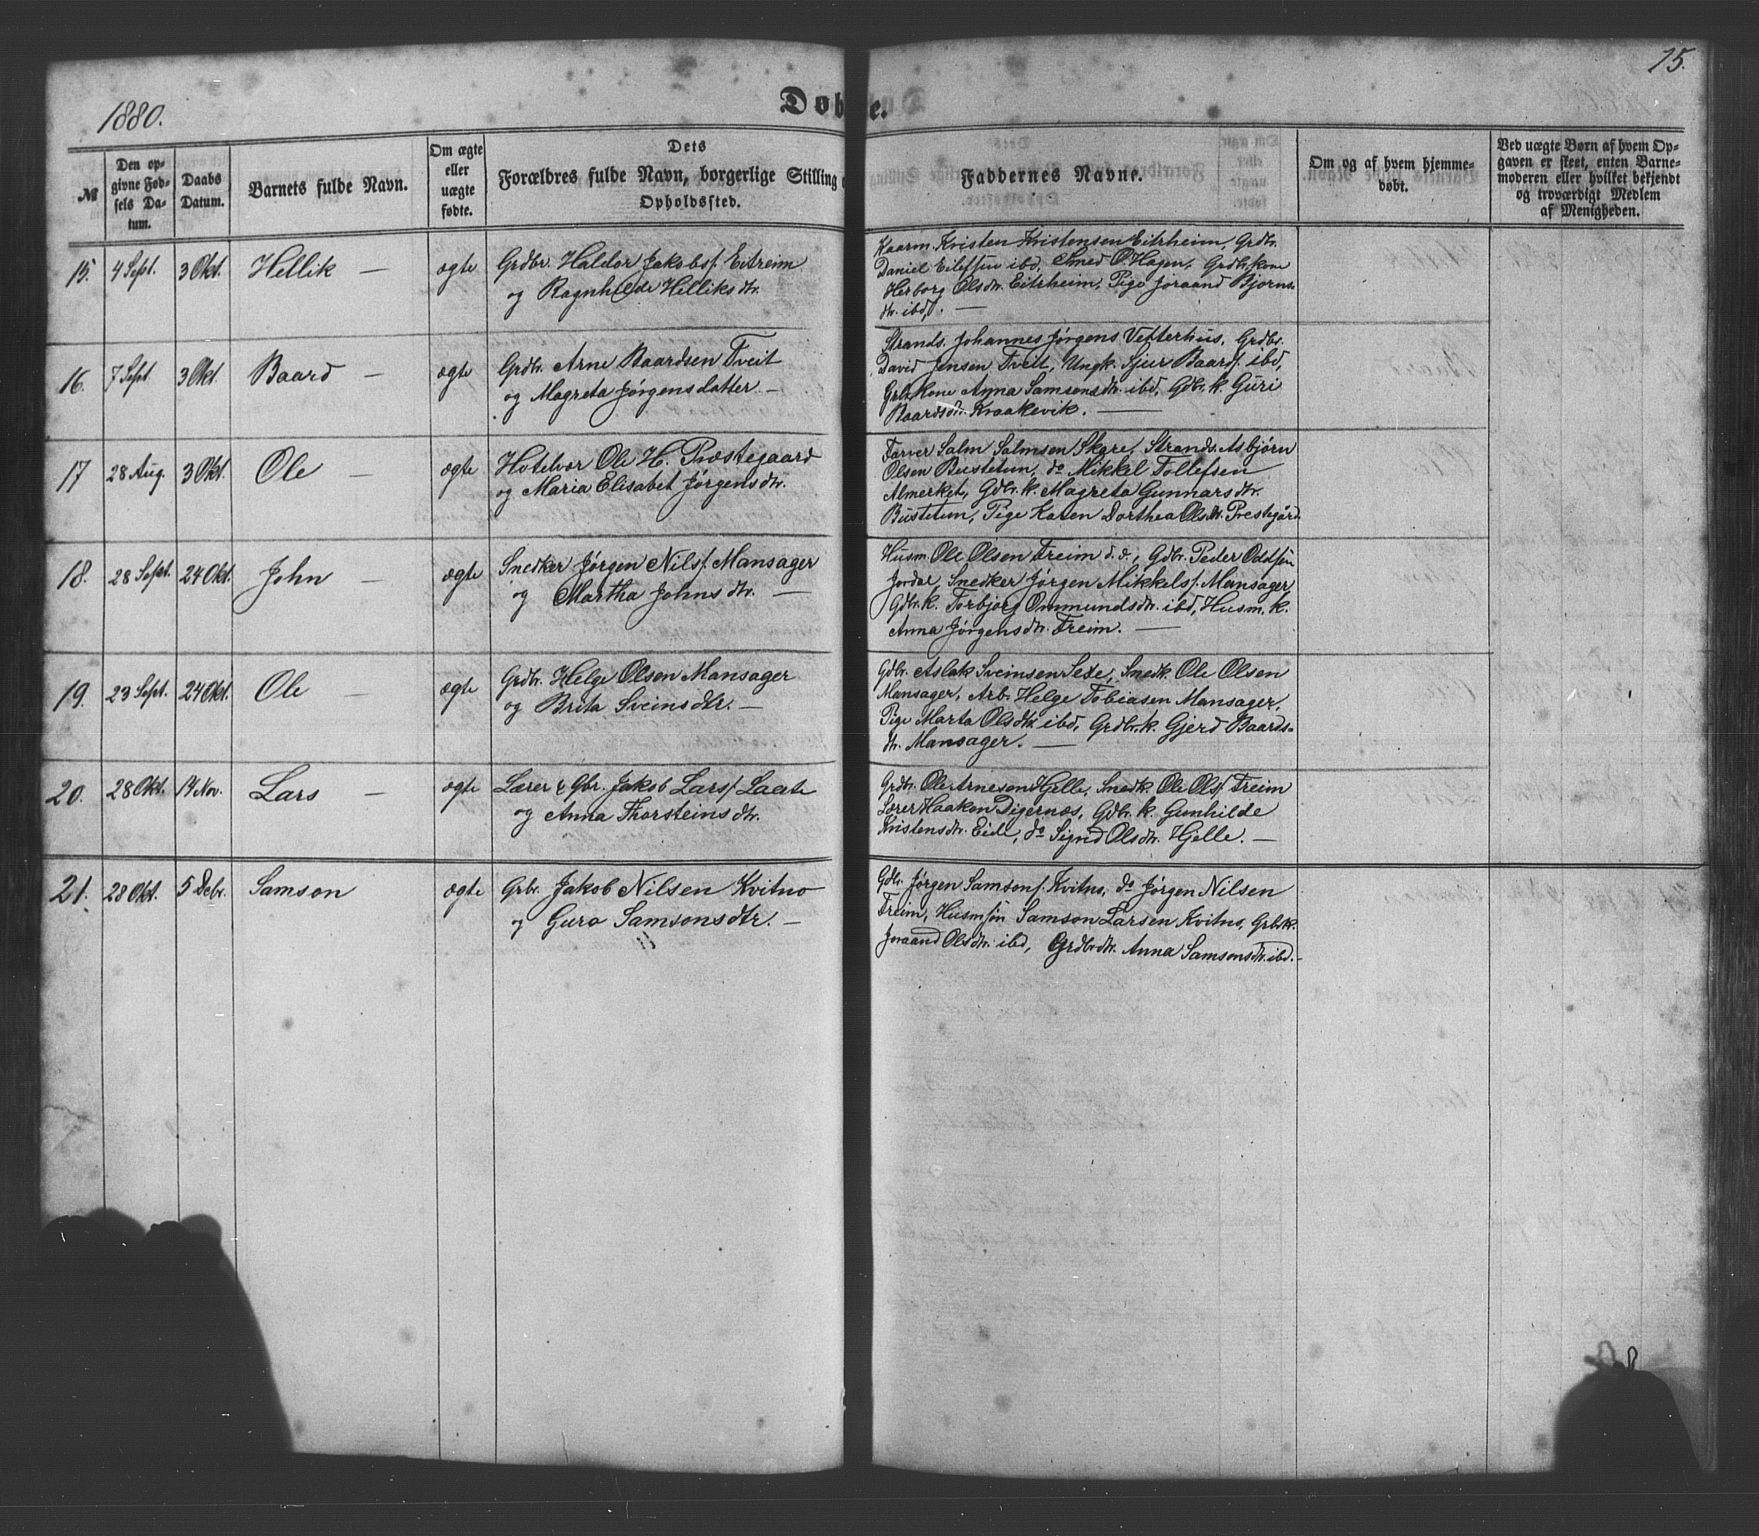 1880.
Døbte.
15.
№
Den op-
givne Fød-
sels Da-
tum.
Daabs
Datum.
Barnets fulde Navn.
Om ægte
eller
uægte
fødte.
Dets
Forældres fulde Navn, borgerlige Stilling
Opholdssted.
Faddernes Navne.
Om og af hvem hjemme-
døbt.
Ved uægte Børn af hvem Op-
gaven er skeet, enten Barne-
moderen eller hvilket bekjendt
og troværdigt Medlem
af Menigheden.
15. 4 Sept. 3 Okt. Hellik — ægte
Grdbr. Haldor Jakobs. Eitreim
og Ragnhilde Helliksdtr.
Kaarm. Kristen Kristensen Eitrheim, Grdbr.
Daniel Eilefsen ibd, Smed O. Hagen, Grdbrkone
Herborg Olsdtr. Eitrheim, Pige Joraand Bjørns-
dtr. ibd. —
16. 7 Sept 3 Okt. Baard — ægte
Grdbr. Arne Baardsen Tveit
og Magreta Jørgensdatter —
Strands. Johannes Jørgens Vetterhus, Grdbr.
David Jensen Tveit, Ungk. Sjur Baards. ibd,
Grbr.kone Anna Samsonsdtr. ibd, Gdbr. k. Guri
Baardsdtr. Kraakevik. —
17 28 Aug. 3 Okt. Ole — ægte
Hotelvær Ole H. Præstegaard
og Maria Elisabet Jørgensdtr.
Farver Salm Salmsen Skare, Strands. Asbjørn
Olsen Bustetun, do Mikkel Tollefsen
Almerket, Gdbr. k. Magreta Gunnarsdtr.
Bustetun, Pige Karen Dorthea Olsdtr. Prestgård
18. 28 Sept. 24 Okt. John — ægte
Snedker Jørgen Nils. Mansager
og Martha Johnsdtr. —
Husm. Ole Olsen Freim d. æ, Gdbr. Peder Oddsen
Jordal, Snedker Jørgen Mikkels. Mansager,
Gdbr. k. Torbjørg Ommundsdtr. ibd, Husm. k.
Anna Jørgensdtr. Freim. —
19. 23 Sept. 24 Okt. Ole — ægte
Grdbr. Helge Olsen Mansager
og Brita Sveinsdtr. —
Gdbr. Aslak Sveinsen Sexe, Snedk. Ole Olsen
Mansager, Arb. Helge Tobiasen Mansager,
Pige Marta Olsdtr ibd, Grdbr. k. Gjerd Baards-
dtr. Mansager. —
20. 28 Okt. 14 Nov. Lars — ægte
Lærer & Gbr. Jakob Lars. Laate
og Anna Thorsteinsdtr.
Grdbr. Ole Arneson Hjelle, Snedk. Ole Ols. Freim
Lærer Haakon Digernæs, Gdbr. k. Gunhilde
Kristensdtr. Eide, do Signd Olsdtr. Hjelle. —
21. 28 Okt. 5 Debr. Samson ægte
Grbr. Jakob Nilsen Kvitno
og Guro Samsonsdtr. —
Gdbr. Jørgen Samsons. Kvitno, do Jørgen Nilsen
Freim, Husm. Samson Larsen Kvitno, Grbr. k.
Joraand Olsdtr. ibd, Grdbr.dtr. Anna Samsonsdtr. ibd. —